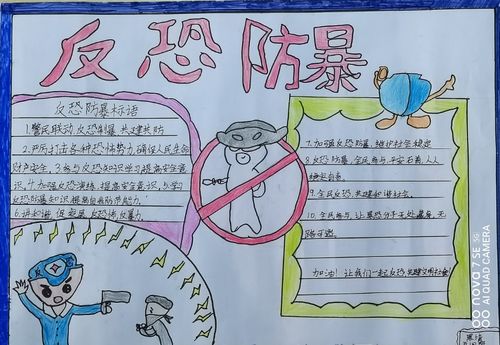 反恐防暴
反恐防暴标语
1.警民联动反恐制暴 共建共防
2.严厉打击各种恐怖势力,确保人民生命
财产安全,3.参与反恐知识学习提高安全意
识,4.加强反恐演练,提高安全意识,5.学习
反恐防暴知识提高自我防范能力,
6.讲和谐,促发展,反恐怖,反暴力。
7.加强反恐防暴,维护社会稳定
8.反恐防暴,全民参与,平安石嘴,人人
9.全民反恐,共建和谐社会,
10.全民参与,让恐怖分子无处藏身,无
路可逃。
加油!让我们一起反恐,共建文明社会!
nova 7 SE 5G
AI QUAD CAMERA